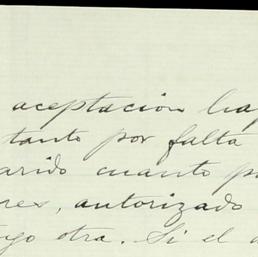 aceptación hay
tanto por falta
arido cuanto po
res, autorizado
otra. Si el